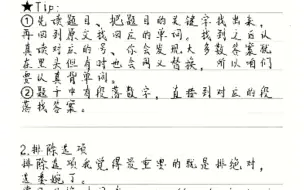 ★Tip:
①先读题目、把题目的关键字找出来，
再回到原文找回应的单词。找到之后认
真读对应的号、你会发现大多数答案就
在里头但有时也会同义替换，所以咱们
要认真背单词。
②题干中有段落数字，直接到对应的段
落找答案。
2.排除选项
排除选项我觉得最重要的就是排绝对，